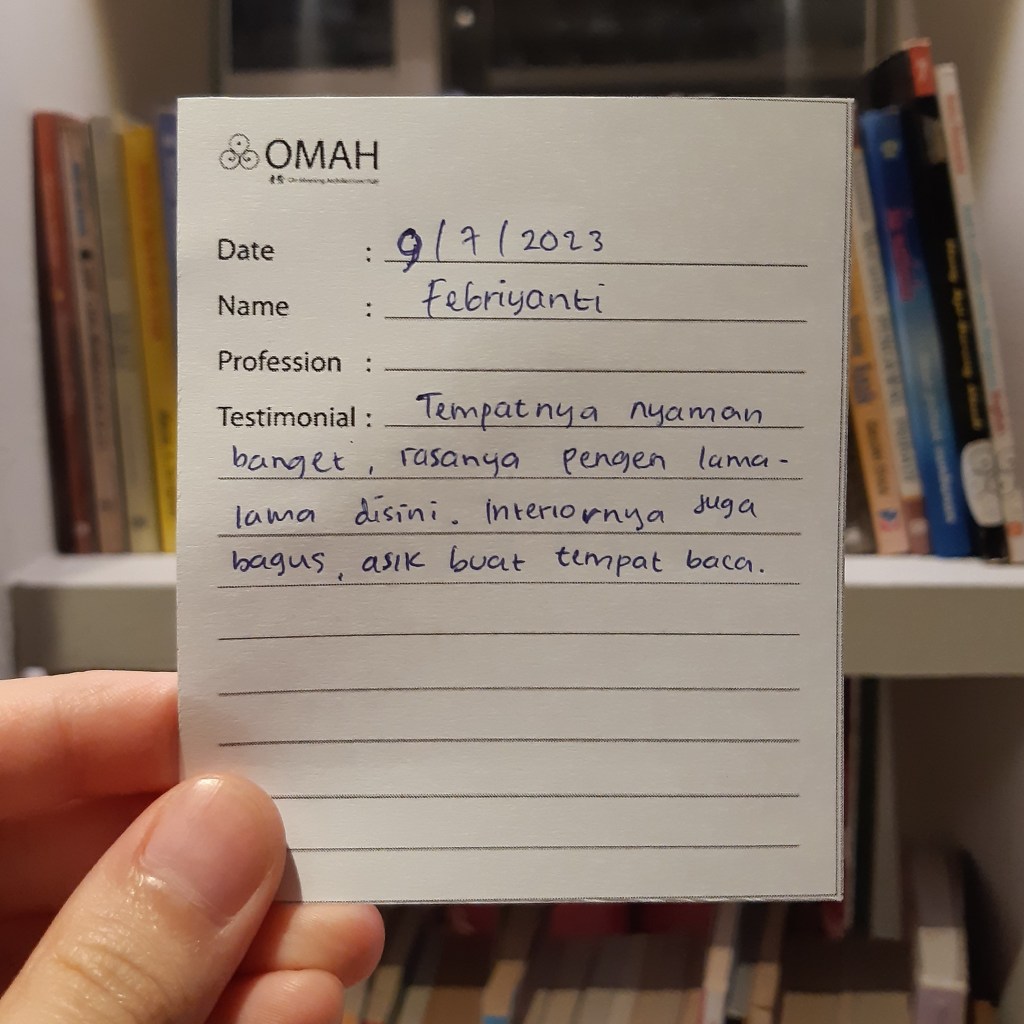 OMAH
Date : 9/7/2023
Name : Febriyanti
Profession :
Testimonial : Tempatnya nyaman
banget, rasanya pengen lama-
lama disini. Interiornya juga
bagus, asik buat tempat baca.